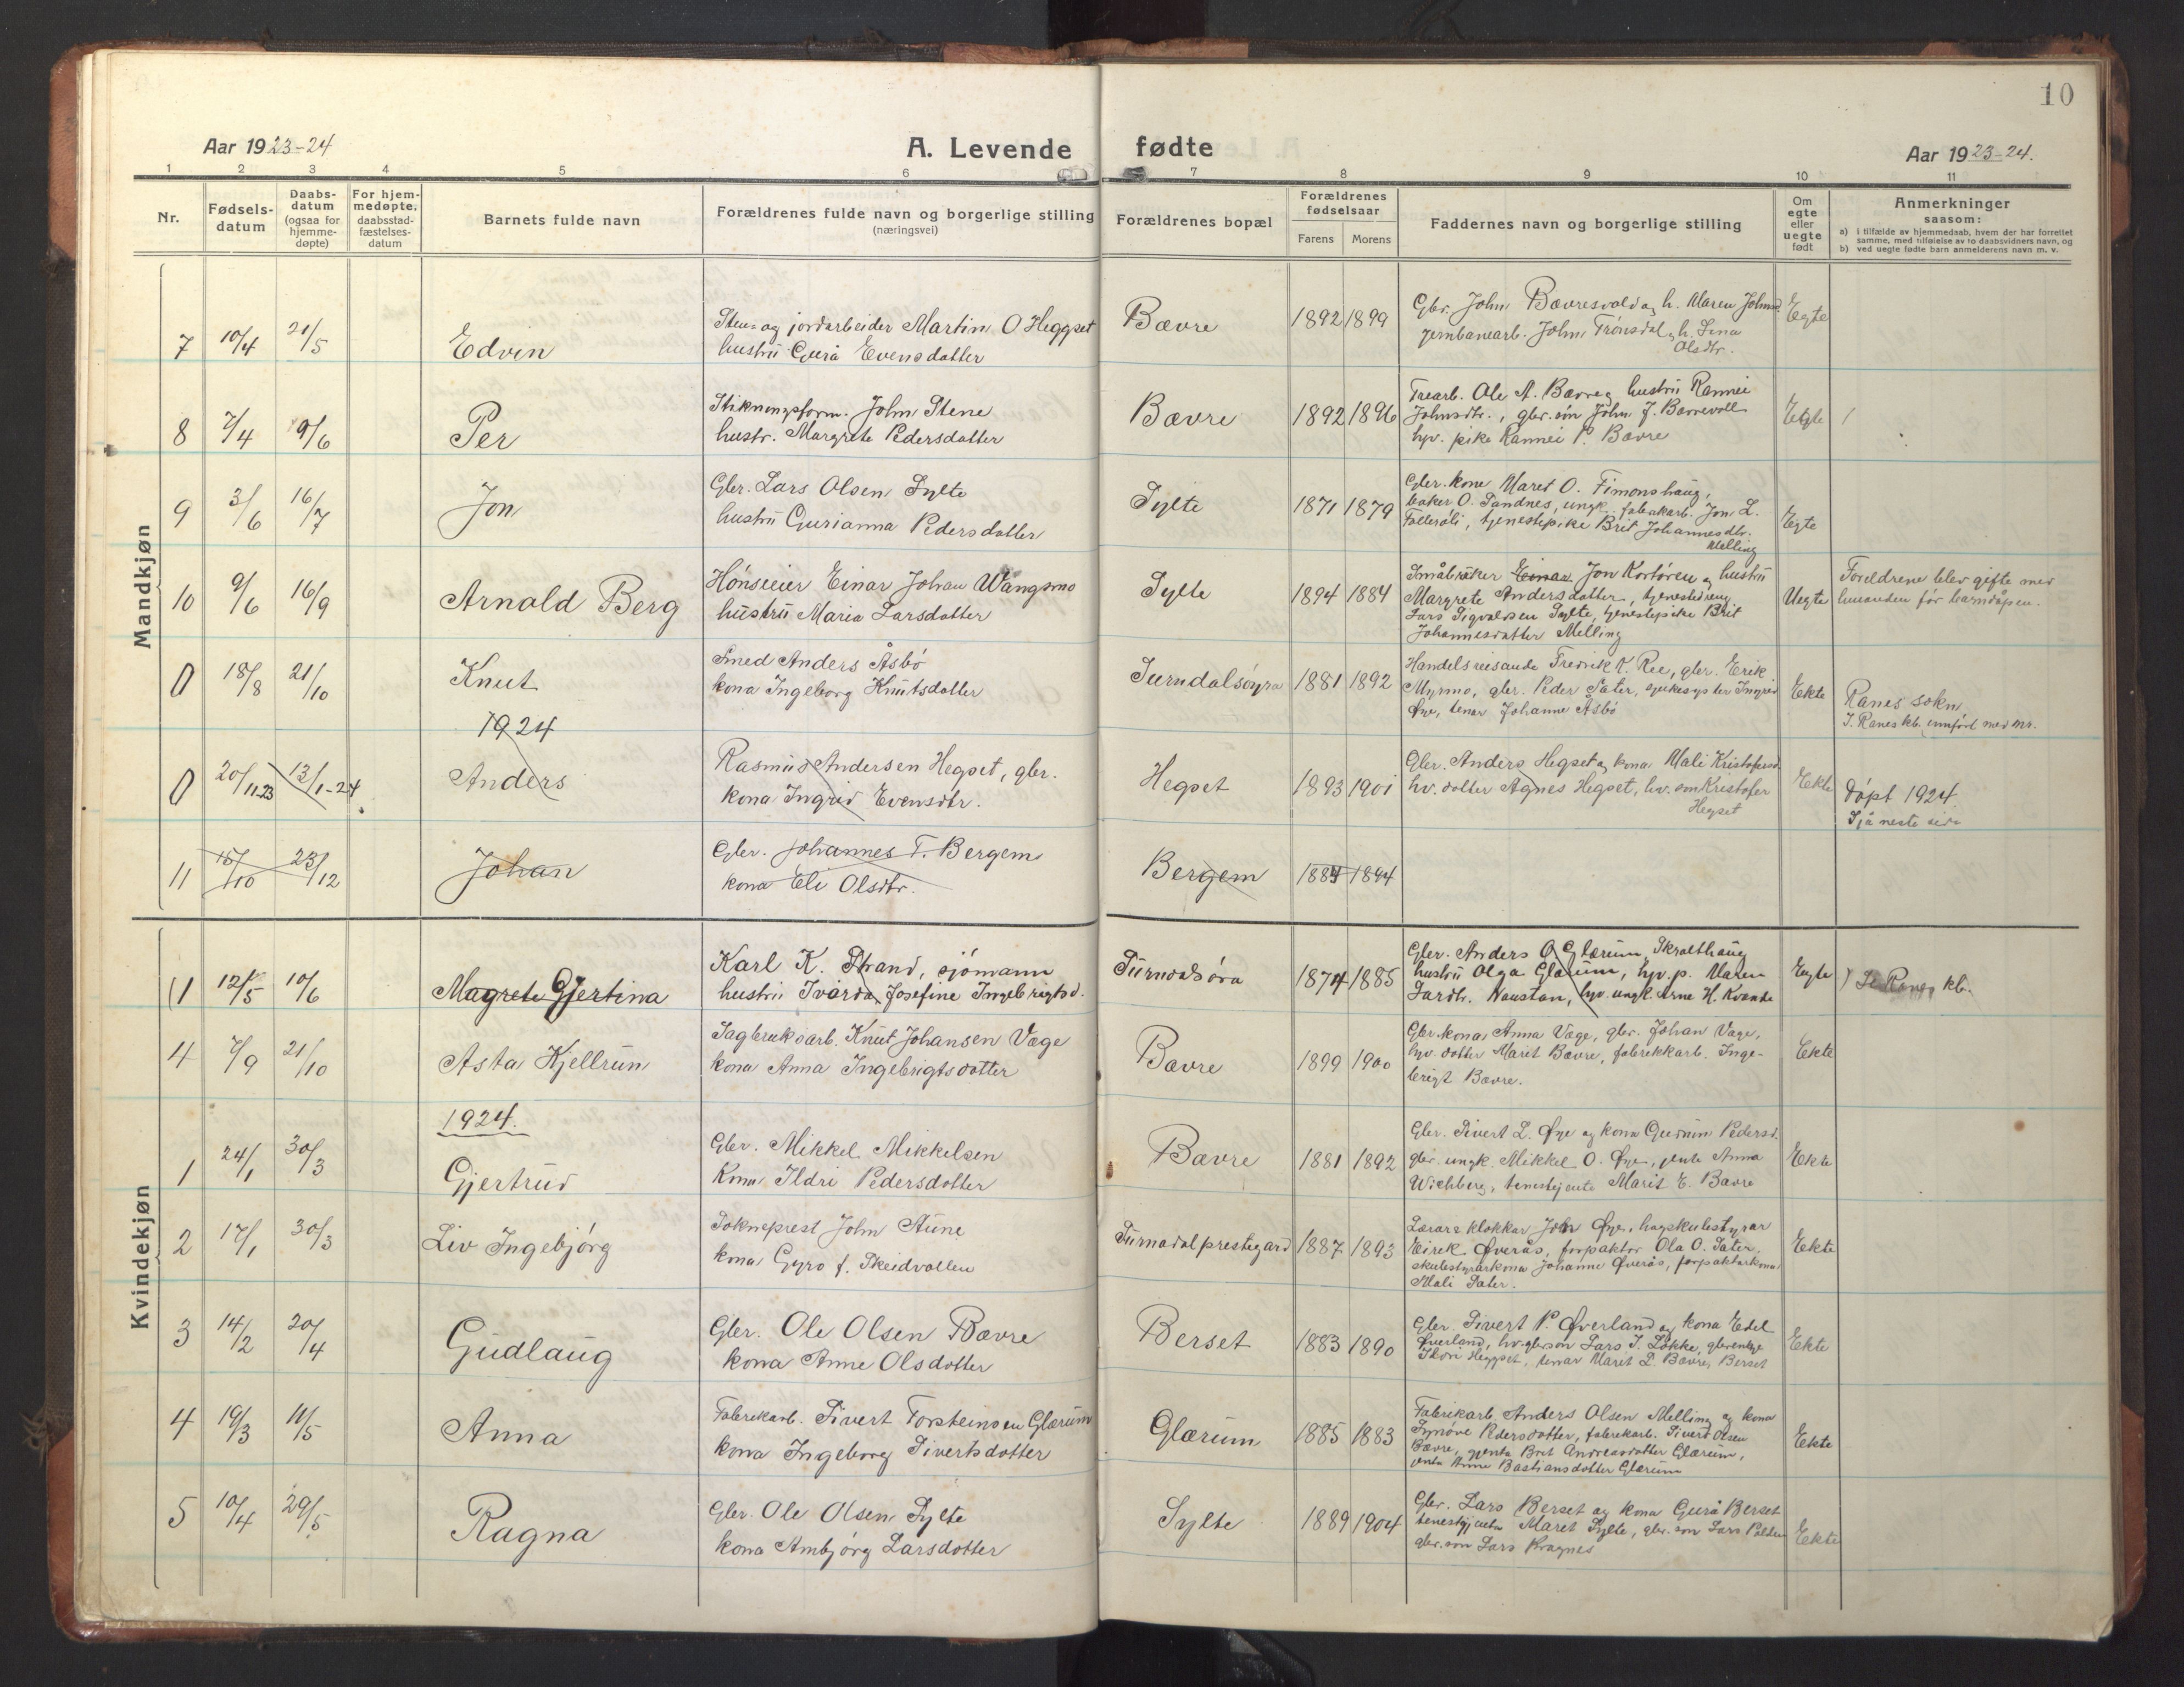 10
Aar 1923-24
A. Levende fødte
Aar 1923-24.
1 2 3 4 5 6 7 8 9 10 11
Nr.
Fødsels-
datum
Daabs-
datum
(ogsaa for
hjemme-
døpte)
For hjem-
medøpte,
daabsstad-
fæstelses-
datum
Barnets fulde navn
Forældrenes fulde navn og borgerlige stilling
(næringsvei)
Forældrenes bopæl
Forældrenes
fødselsaar
Farens Morens
Faddernes navn og borgerlige stilling
Om
egte
eller
uegte
født
Anmerkninger
saasom:
a) i tilfælde av hjemmedaab, hvem der har forrettet
samme, med tilføielse av to daabsvidners navn, og
b) ved uegte fødte barn anmelderens navn m. v.
Mandkjøn
7 10/4 21/5 Edvin
Sten- og jordarbeider Martin O. Heggset
hustru Gurå Evensdatter
Bævre 1892 1899
Gbr. John Bævresvold og h. Maren Johnsd.
jernbanearb. John Trønsdal, h. Lina
Olsdtr.
Egte
8 7/4 9/6 Per
Stikningsform. John Stene
hustr. Margrete Pedersdatter
Bævre 1892 1896
Trearb. Ole A. Bævre og hustru Rannei
Johnsdtr., gbr. søn John J. Bævrevoll
hjv. pike Rannei P. Bævre
Egte
9 3/6 16/7 Jon
Gbr. Lars Olsen Sylte
hustru Gurianna Pedersdatter
Sylte 1871 1879
Gbr. kone Maret O. Simonshaug,
baker O. Sandnes, ungk. fabrakarb. Jon L.
tjenestepike Brit Johannesdtr.
Melling
Egte
10 9/6 16/9 Arnold Berg
Hønseeier Einar Johan Wangsmo
hustru Maria Larsdatter
Sylte 1894 1884
Småbruker Einar Jon Kortøren og hustru
Margrete Andersdatter, tjenestedreng
Lars Sigvaldsen Sylte, tjenestepike Brit
Johannesdatter Melling
Uegte
Foreldrene blev gifte med
hinanden før barndåpen.
0 18/8 21/10 Knut
Smed Anders Åsbø
kona Ingeborg Knutsdatter
Surndalsøyra 1881 1892
Handelsreisande Fredrik K. Ree, gbr. Erik
Myrmo, gbr. Peder Sæter, sjukesyster Ingrid
Øye, tenar Johanne Åsbø
Ekte
Ranes sokn
I Ranes kb. innført med nr.
1924
0 20/11-23 13/1-24 Anders
Rasmus Andersen Hegset, gbr.
kona Ingrid Evensdtr.
Hegset 1893 1901
Gbr. Anders Hegset og kona Mali Kristofersd.
hv. dotter Agnes Hegset, hv. søn Kristofer
Hegset
Ekte
Døpt 1924.
Sjå neste side
11 15/10 23/12 Johan
Gbr. Johannes T. Bergem
kona Eli Olsdtr.
Bergem 1884 1894
Kvindekjøn
(1 12/5 10/6 Magrete Gjertina
Karl K. Strand, sjømann
hustru Ivarda Josefine Ingebrigtsd.
Surndalsøra 1874 1885
Gbr. Anders O. Glærum, Skralthaug
hustru Olga Glærum, hjv. p. Maren
Larsdtr. Naustan, hjv. ungk. Arne H. Kvande
Egte
) Se Ranes kb.
4 7/9 21/10 Asta Kjellrun
Sagbruksarb. Knut Johansen Væge
kona Anna Ingebrigtsdotter
Bævre 1899 1900
Gbr. kona Anna Væge, gbr. Johan Væge,
hjv. dotter Marit Bævre, fabrikkarb. Inge-
brigt Bævre.
Ekte
1924.
1 24/1 30/3 Gjertrud
Gbr. Mikkel Mikkelsen
Kona Ildri Pedersdotter
Bævre 1881 1892
Gbr. Sivert L. Øye og kona Gudrun Pedersd.
gbr. ungk. Mikkel O. Øye, jente Anna
Wichberg, tenestejente Marit E. Bævre
Ekte
2 17/1 30/3 Liv Ingebjørg
Sokneprest John Aune
kona Gyro f. Skeidvollen
Surnadal prestegard 1887 1893
Lærar & klokkar John Øye, hagskulestyrar
Eirek Øverås, forpaktar Ola O. Sæter,
skulestyrarkona Johanne Øverås, forpaktarkona
Mali Sæter.
Ekte
3 14/2 20/4 Gudlaug
Gbr. Ole Olsen Bævre
kona Anne Olsdotter
Berset 1883 1890
Gbr. Sivert P. Øverland og kona Edel
Øverland, hv. gbr. søn Lars J. Løkke, gbr. enkje
Heggset, tenar Marit L. Bævre, Berset
Ekte
4 19/3 11/5 Anna
Fabrikarb. Sivert Torsteinsen Glærum
kona Ingeborg Sivertsdotter
Glærum 1885 1883
Fabrikarb. Anders Olsen Melling og kona
Synøve Pedersdotter, fabrikarb. Sivert Olsen
Bævre, gjenta Brit Andreasdotter Glærum,
jenta Anne Bastiansdotter Glærum
Ekte
5 10/4 29/5 Ragna
Gbr. Ole Olsen Sylte
kona Ambjørg Larsdotter
Sylte 1889 1904
Gbr. Lars Berset og kona Gurå Berset
tenestejenta Maret Sylte, gbr. son Lars
gbr. son Lars Kragnes
Ekte